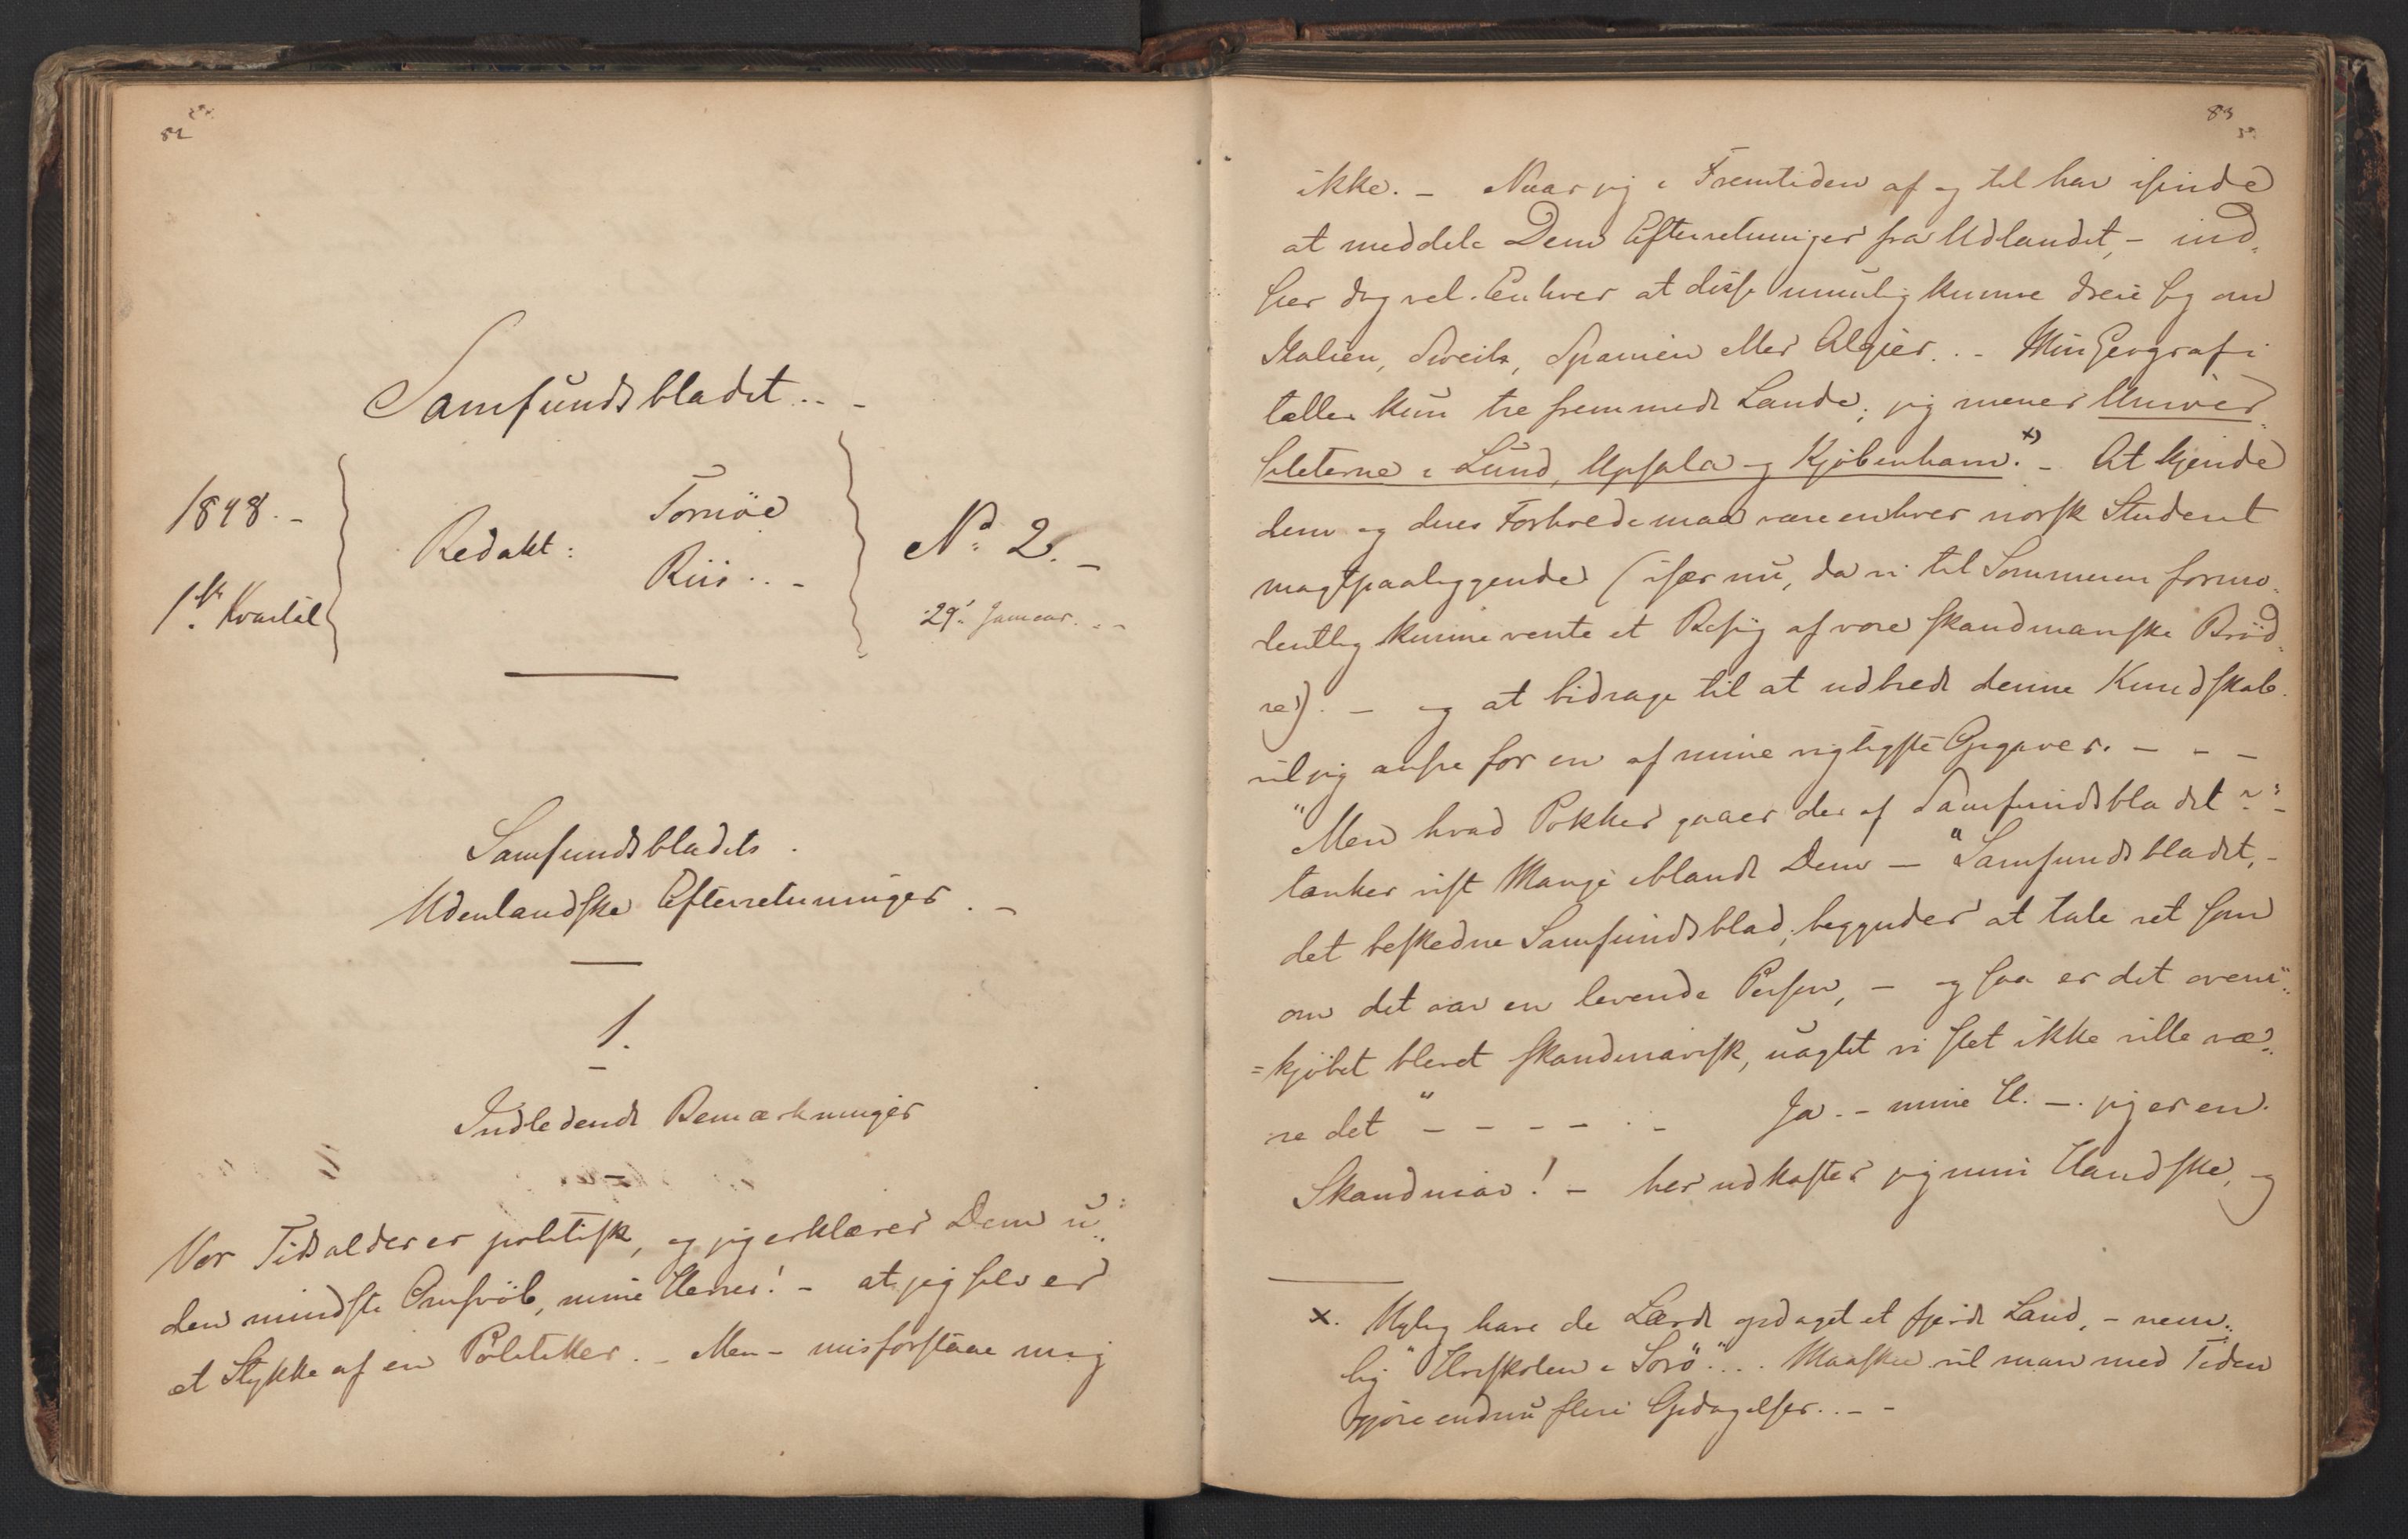 82
Samfundsbladet. . –
1848. –
1ste Kvartal
Redakt:
Tornöe
Riis . . –
No 2. –
29. Januar. . –
Samfundsbladets.
Udenlandske Efterretninger. –
1.
Indledende Bemærkninger
Vor Tidsalder er politisk, og jeg erklærer Dem u-
den mindste Omsvöb, mine Herrer! – at jeg selv er
et Stykke af en Politikker. – Men – misforstaae mig
83
ikke. – Naar jeg i Fremtiden af og til har isinde
at meddele Dem Efterretninger fra Udlandet, – ind-
seer dog vel Enhver at disse umulig kunne dreie sig om
Italien, Sweitz, Spanien eller Algier. . – Min Geografi
tæller kun tre fremmede Lande; jeg mener Univer-
siteterne i Lund, Upsala og Kjöbenhavn. x) – At kjende
dem og deres Forholde maa være enhver norsk Student
magtpaaliggende (især nu, da vi til Sommeren formo-
dentlig kunne vente et Besög af vore skandinaviske Bröd-
re). – og at bidrage til at udbrede denne Kundskab
vil jeg ansee for en af mine vigtigste Opgaver. – – –
"Men hvad Pokker gaaer der af Samfundsbladet?" –
tænker vist Mange iblandt Dem – "Samfundsbladet, –
det beskedne Samfundsblad, begynder at tale ret som
om det var en levende Person, – og saa er det oveni-
=kjöbet blevet skandinavisk, uagtet vi slet ikke ville væ-
re det" – – – – . – Ja. – mine H. – . jeg er en
Skandinav! – her udkaster jeg min Handske, og
x. Nylig have de Lærde opdaget et fjerde Land, – nem-
lig "Höiskolen i Sorö". . . Maaskee vil man med Tiden
gjöre endnu flere Opdagelser. . – –